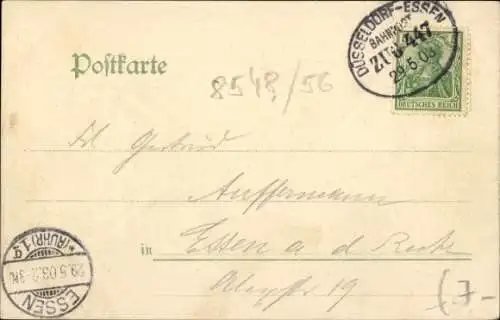 Postkarte
DÜSSELDORF-ESSEN
BAHNPOST
ZUG 447
29.5.03
DEUTSCHES REICH
8548/56
Frl. Gertrud
Auffermann
in Essen a d Ruhr
19
ESSEN
29.5.03.
*(RUHR) 1.g
(7-